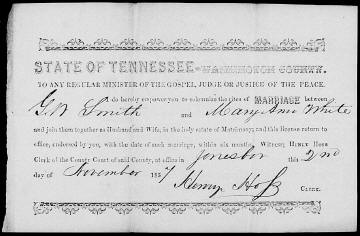 STATE OF TENNESSEE—WASHINGTON COUNTY.
TO ANY REGULAR MINISTER OF THE GOSPEL, JUDGE OR JUSTICE OF THE PEACE.
I do hereby empower you to solemnize the rites of MARRIAGE between
G. W. Smith and Mary Ann White
and join them together as Husband and Wife, in the holy estate of Matrimony; and this license return to
office, endorsed by you, with the date of such marriage, within six months. Witness, Henry Hoss
Clerk of the County Court of said County, at office in Jonesboro this 2nd
day of November 1857
Henry Hoss Clerk.